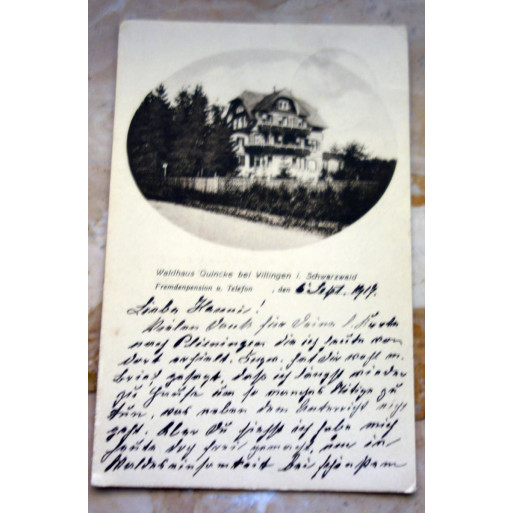 Waldhaus Quincke bei Villingen i. Schwarzwald
Fremdenpension u. Telefon , den 6 Sept. 1917.
Liebe Hanni!
Vielen Dank für Deine l. Karte
nach Plieningen die ich heute von
dort erhielt. hat Dir wohl m.
Brief gesagt, daß ich längst wieder
zu Hause um so manches Nötige zu
tun, was neben dem Unterricht nicht
geht. Aber Du siehst ich habe mich
heute doch frei gemacht, um in
Waldeseinsamkeit bei schönstem